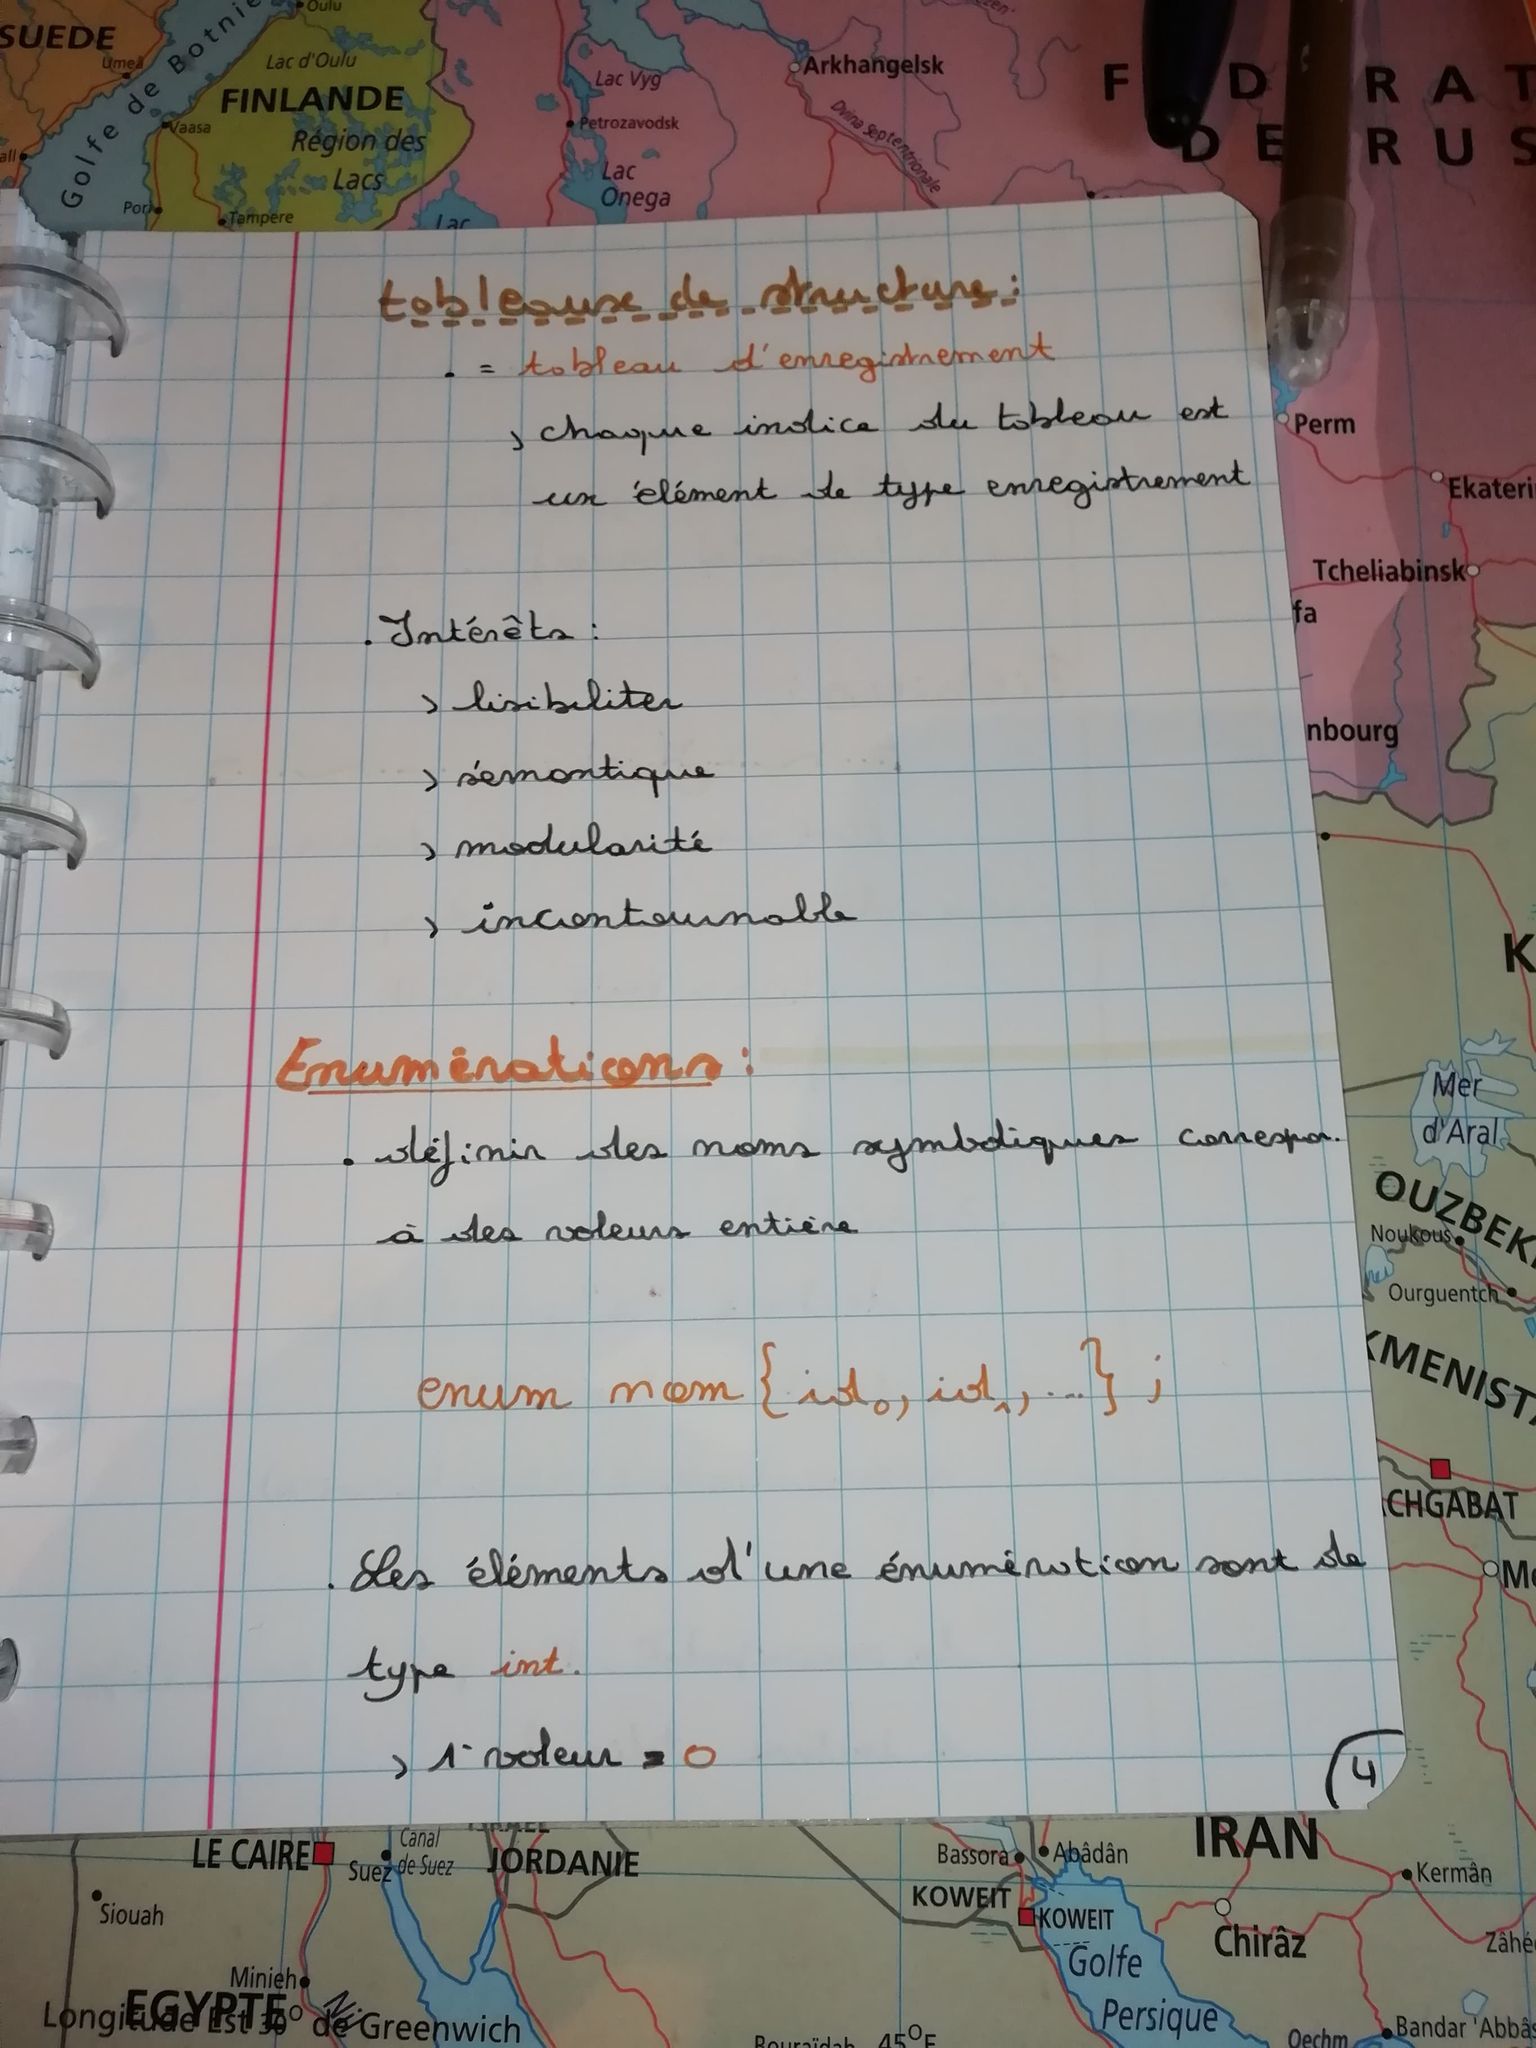 SUEDE
Umeå
Golfe de Botnie
Oulu
Lac d'Oulu
FINLANDE
Vaasa
Région des
Lacs
Pori
Tampere
Lac
Lac Vyg
Petrozavodsk
Lac
Onega
Arkhangelsk
Dvina Septentrionale
F D RAT
DE RUS
tableaux de structure :
. = tableau d'enregistrement
> chaque indice du tableau est
un élément de type enregistrement
. Intérêts :
> lisibiliter
> sémantique
> modularité
> incontournable
Enumérations :
. définir des noms symboliques correspon.
à des valeurs entière
enum nom { id₀, id₁, ...} ;
. Les éléments d'une énumération sont de
type int.
> 1ᵉ valeur = 0
4
Perm
Ekateri
Tcheliabinsk
fa
nbourg
K
Mer
d'Aral
OUZBEK
Noukous
Ourguentch
KMENIST
CHGABAT
Me
LE CAIRE
Suez
Canal
de Suez
JORDANIE
Siouah
Minieh
EGYPTE
Longitude Est 30° de Greenwich
Bassora
Abâdân
KOWEIT
KOWEIT
IRAN
Kermân
Chirâz
Zâhé
Golfe
Persique
Bouraïdah
45°E
Oechm
Bandar 'Abbâs